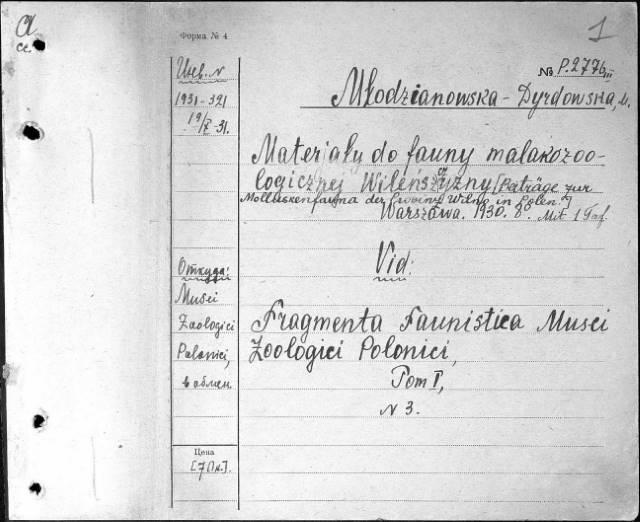 Форма № 4
1
№ P.2776/III
Инв. N
1931-321
19/X-31.
Młodzianowska-Dyrdowska, M.
Materjały do fauny malakozoo-
logicznej Wileńszczyzny [Beiträge zur
Molluskenfauna der Provinz Wilno in Polen.]
Warszawa. 1930. 8°. Mit 1 Taf.
Vid:
Откуда:
Musei
Zoologici
Polonici,
в обмен.
Fragmenta Faunistica Musei
Zoologici Polonici,
Tom I,
N 3.
Цена